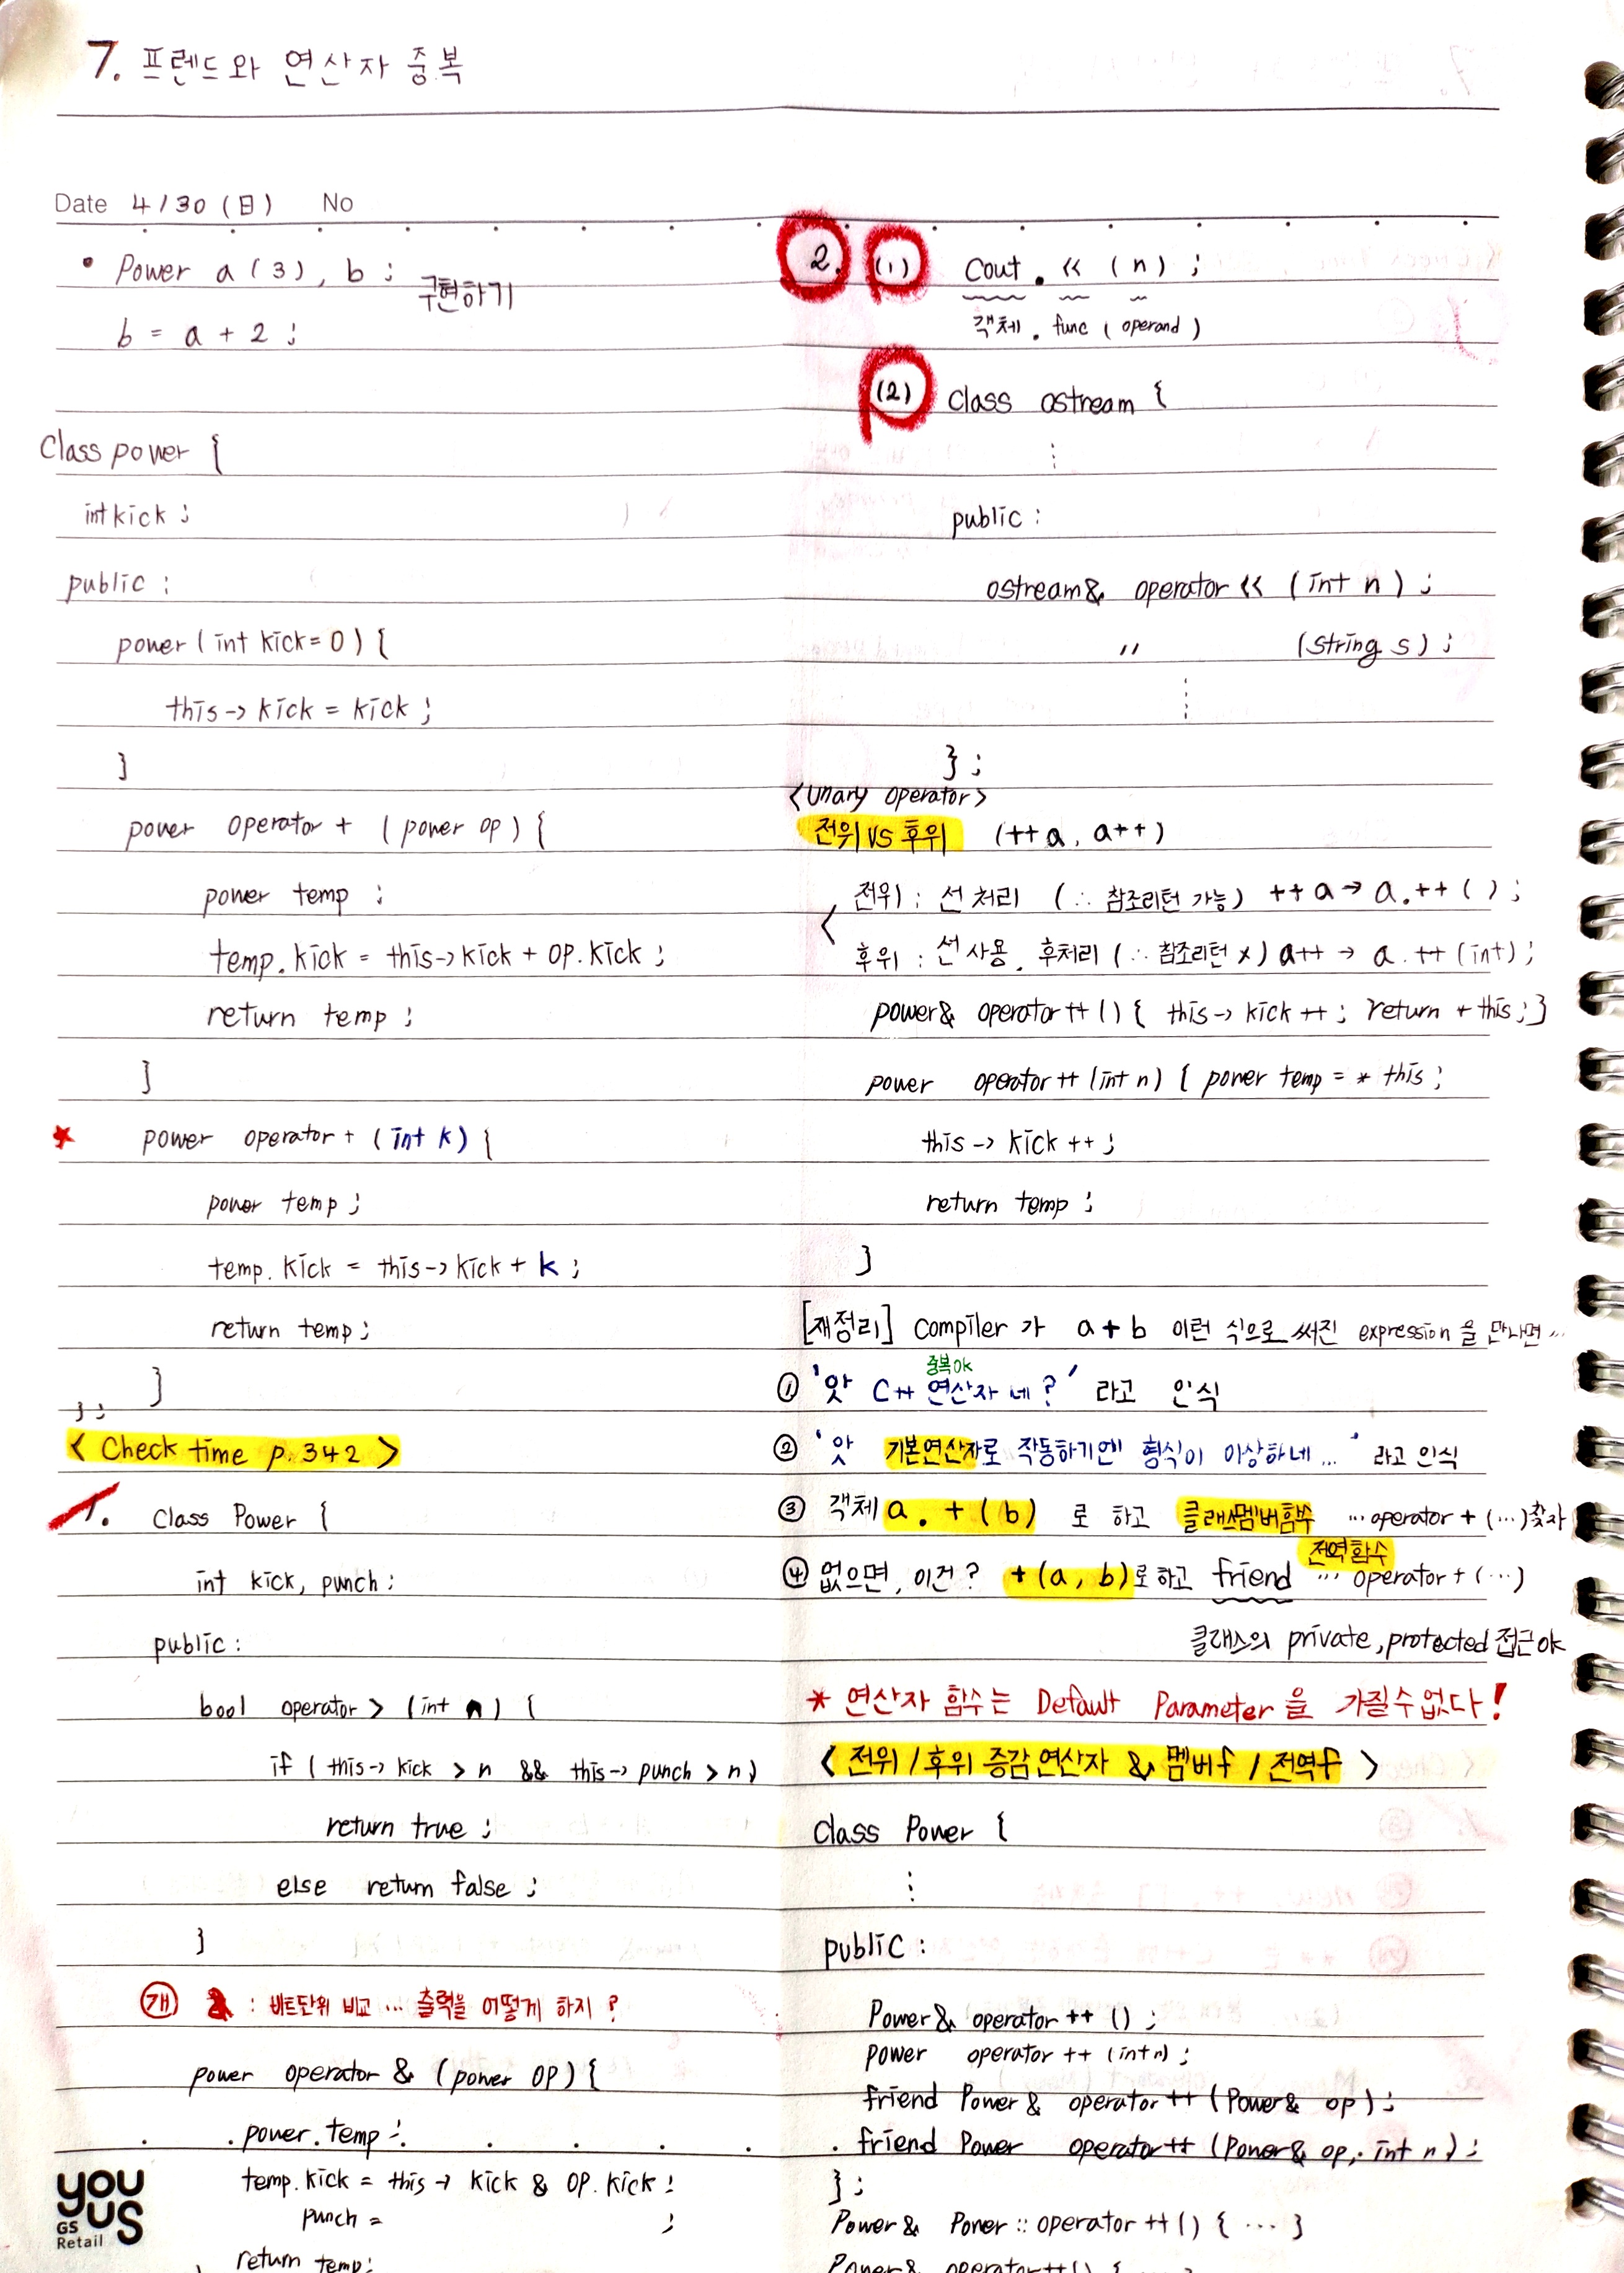 7. 프렌드와 연산자 중복
Date 4/30 (日) No
• Power a (3), b ;
구현하기
b = a + 2 ;
Class power {
int kick ;
public :
power ( int kick = 0 ) {
this -> kick = kick ;
}
power operator + ( power op ) {
power temp ;
temp. kick = this -> kick + op. kick ;
return temp ;
}
★ power operator + ( int k ) {
power temp ;
temp. kick = this -> kick + k ;
return temp ;
}
} ;
< Check time p. 342 >
1. Class Power {
int kick, punch ;
public :
bool operator > ( int n ) {
if ( this -> kick > n && this -> punch > n )
return true ;
else return false ;
}
개 2 : 비트단위 비교 … 출력을 어떻게 하지 ?
power operator & ( power op ) {
power. temp ;
temp. kick = this -> kick & op. kick ;
punch = ;
return temp ;
you us
GS Retail
2. (1) Cout . << ( n ) ;
객체 . func ( operand )
(2) class ostream {
⋮
public :
ostream& operator << ( int n ) ;
〃 ( string s ) ;
⋮
} ;
< Unary operator >
전위 VS 후위 ( ++ a, a ++ )
전위 : 선 처리 ( ∴ 참조리턴 가능 ) ++ a → a . ++ ( ) ;
후위 : 선 사용. 후처리 ( ∴ 참조리턴 x ) a++ → a . ++ (int) ;
power& operator ++ () { this -> kick ++ ; return * this ; }
power operator ++ (int n) { power temp = * this ;
this -> kick ++ ;
return temp ;
}
[재정리] compiler 가 a + b 이런 식으로 써진 expression 을 만나면 …
중복ok
① ' 앗 C++ 연산자 네 ? ' 라고 인식
② ' 앗 기본연산자로 작동하기엔 형식이 이상하네 … ' 라고 인식
③ 객체 a . + ( b ) 로 하고 클래스멤버함수 … operator + (…) 찾자
전역함수
④ 없으면, 이건 ? + ( a, b ) 로 하고 friend … operator + (…)
클래스의 private, protected 접근 ok
* 연산자 함수는 Default Parameter 을 가질 수 없다 !
< 전위 / 후위 증감 연산자 & 멤버f / 전역f >
Class Power {
⋮
public :
Power& operator ++ () ;
power operator ++ (int n) ;
friend Power & operator ++ ( Power& op ) ;
friend Power operator ++ ( Power& op, int n ) ;
} ;
Power& Power :: operator ++ () { … }
Power& operator ++ () { … }